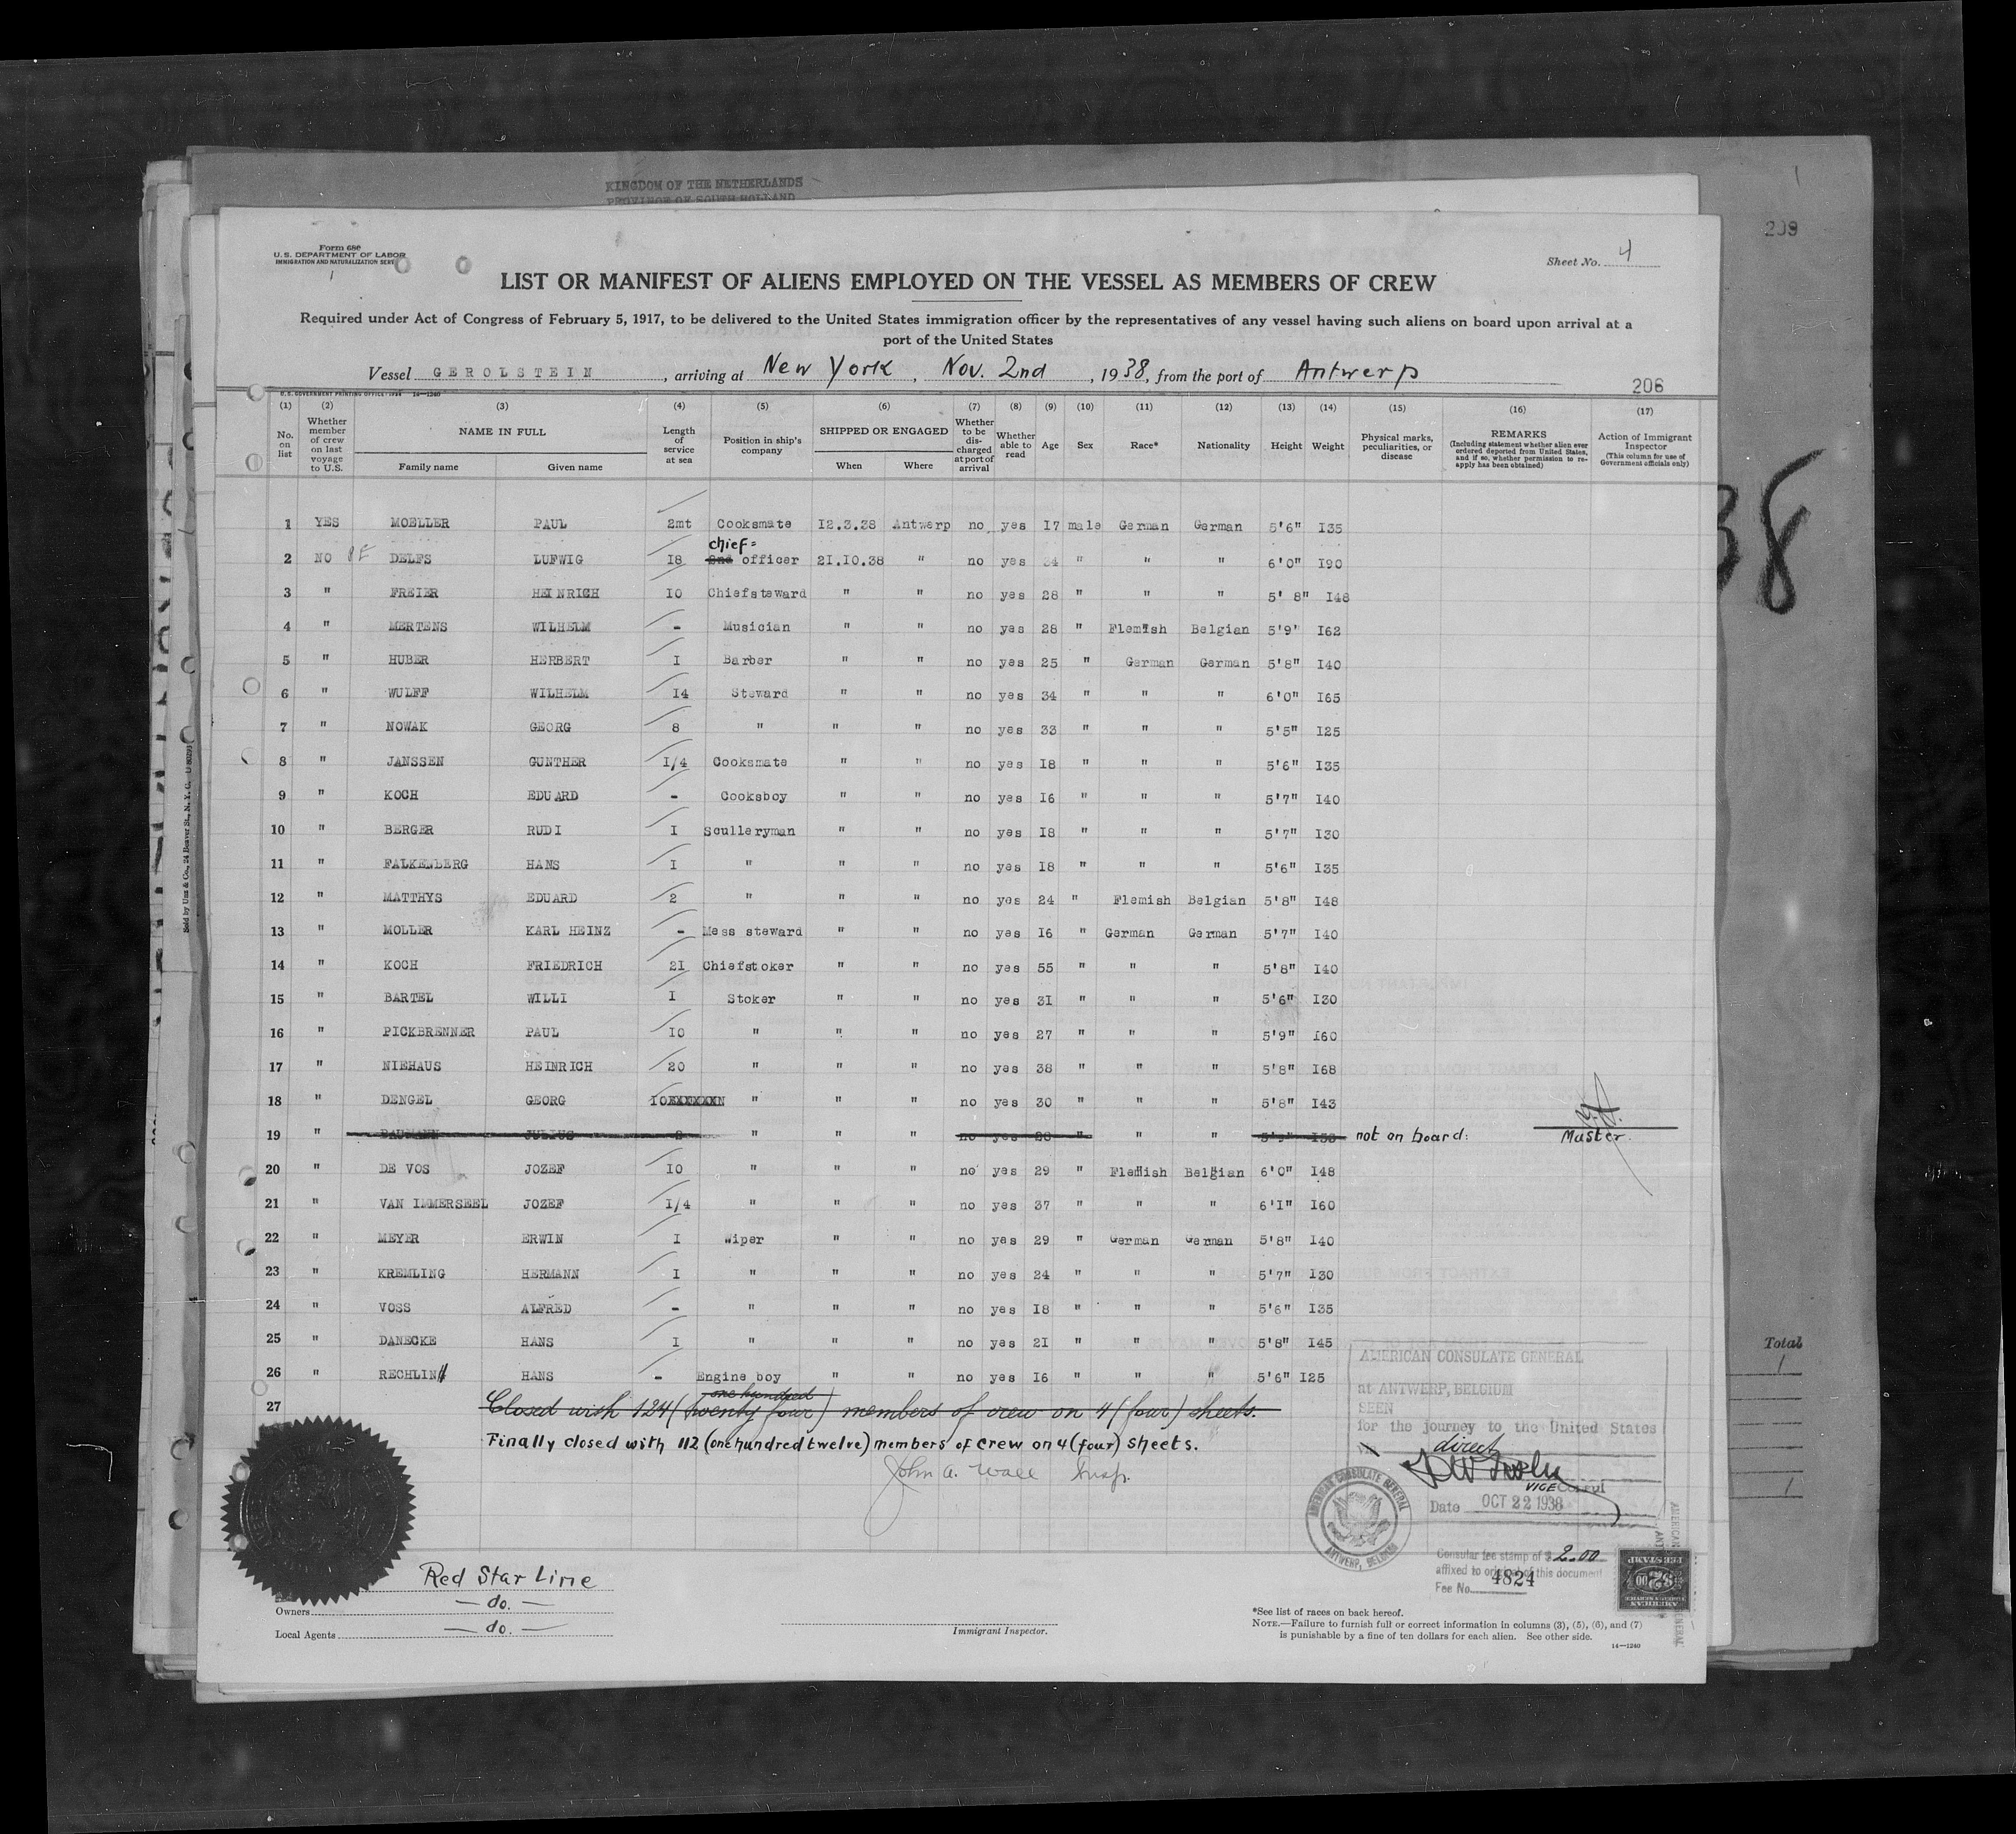 KINGDOM OF THE NETHERLANDS
PROVINCE OF SOUTH HOLLAND
209
Form 680
U. S. DEPARTMENT OF LABOR
IMMIGRATION AND NATURALIZATION SERV
Sheet No. 4
LIST OR MANIFEST OF ALIENS EMPLOYED ON THE VESSEL AS MEMBERS OF CREW
Required under Act of Congress of February 5, 1917, to be delivered to the United States immigration officer by the representatives of any vessel having such aliens on board upon arrival at a
port of the United States
Vessel GEROLSTEIN, arriving at New York, Nov. 2nd, 1938, from the port of Antwerp
206
U.S. GOVERNMENT PRINTING OFFICE 14—1240
(1) (2) (3) (4) (5) (6) (7) (8) (9) (10) (11) (12) (13) (14) (15) (16) (17)
No. on list
Whether member of crew on last voyage to U.S.
NAME IN FULL
Family name Given name
Length of service at sea
Position in ship's company
SHIPPED OR ENGAGED
When Where
Whether to be discharged at port of arrival
Whether able to read
Age
Sex
Race*
Nationality
Height
Weight
Physical marks, peculiarities, or disease
REMARKS
(Including statement whether alien ever ordered deported from United States, and if so, whether permission to re-apply has been obtained)
Action of Immigrant Inspector
(This column for use of Government officials only)
1 YES MOELLER PAUL 2mt Cooksmate I2.3.38 Antwerp no yes I7 male German German 5'6" I35
chief=
2 NO DELFS LUFWIG I8 2nd officer 2I.I0.38 " no yes 34 " " " 6'0" I90
3 " FREIER HEINRICH I0 Chiefsteward " " no yes 28 " " " 5' 8" I48
4 " MERTENS WILHELM - Musician " " no yes 28 " Flemish Belgian 5'9" I62
5 " HUBER HERBERT I Barber " " no yes 25 " German German 5'8" I40
6 " WULFF WILHELM I4 Steward " " no yes 34 " " " 6'0" I65
7 " NOWAK GEORG 8 " " " no yes 33 " " " 5'5" I25
8 " JANSSEN GUNTHER I/4 Cooksmate " " no yes I8 " " " 5'6" I35
9 " KOCH EDUARD - Cooksboy " " no yes I6 " " " 5'7" I40
10 " BERGER RUDI I Sculleryman " " no yes I8 " " " 5'7" I30
11 " FALKENBERG HANS I " " " no yes I8 " " " 5'6" I35
12 " MATTHYS EDUARD 2 " " " no yes 24 " Flemish Belgian 5'8" I48
13 " MOLLER KARL HEINZ - Mess steward " " no yes I6 " German German 5'7" I40
14 " KOCH FRIEDRICH 2I Chiefstoker " " no yes 55 " " " 5'8" I40
15 " BARTEL WILLI I Stoker " " no yes 3I " " " 5'6" I30
16 " PICKBRENNER PAUL I0 " " " no yes 27 " " " 5'9" I60
17 " NIEHAUS HEINRICH 20 " " " no yes 38 " " " 5'8" I68
18 " DENGEL GEORG I0XXXXXXN " " " no yes 30 " " " 5'8" I43
19 " BAUMANN JULIUS " " " no yes " " " not on board: Master.
20 " DE VOS JOZEF I0 " " " no yes 29 " Flemish Belgian 6'0" I48
21 " VAN IMMERSEEL JOZEF I/4 " " " no yes 37 " " " 6'I" I60
22 " MEYER ERWIN I Wiper " " no yes 29 " German German 5'8" I40
23 " KREMLING HERMANN I " " " no yes 24 " " " 5'7" I30
24 " VOSS ALFRED - " " " no yes I8 " " " 5'6" I35
25 " DANECKE HANS I " " " no yes 2I " " " 5'8" I45
26 " RECHLIN HANS - Engine boy " " no yes I6 " " " 5'6" I25
one hundred
27 Closed with 124 (twenty four) members of crew on 4 (four) sheets.
Finally closed with 112 (one hundred twelve) members of crew on 4 (four) sheets.
John A. Wall Insp.
AMERICAN CONSULATE GENERAL
at ANTWERP, BELGIUM
SEEN
for the journey to the United States
direct
VICE Consul
Date OCT 22 1938
AMERICAN CONSULATE GENERAL
ANTWERP, BELGIUM
Consular fee stamp of $ 2.00
affixed to original of this document
Fee No. 4824
Red Star Line
Owners — do. —
Local Agents — do. —
Immigrant Inspector.
*See list of races on back hereof.
NOTE.—Failure to furnish full or correct information in columns (3), (5), (6), and (7)
is punishable by a fine of ten dollars for each alien. See other side.
14—1240
Sold by Unz & Co., 24 Beaver St., N. Y. C.
38
Total